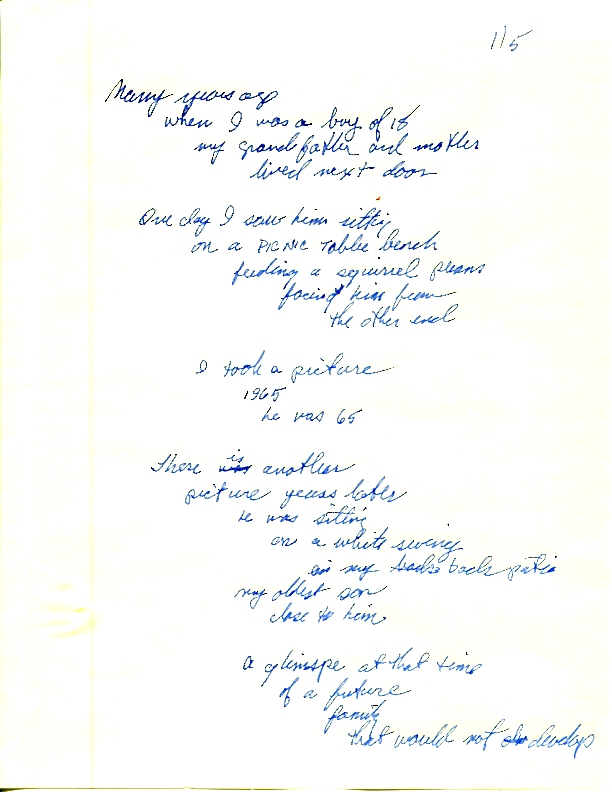 1/5
Many years ago
when I was a boy of 18
my grandfather and mother
lived next door
One day I saw him sitting
on a PICNIC Table bench
feeding a squirrel pecans
facing him from
the other end
I took a picture
1965
he was 65
There is another
picture years later
he was sitting
on a white swing
on my back patio
my oldest son
close to him
a glimspe at that time
of a future
family
that would not develop